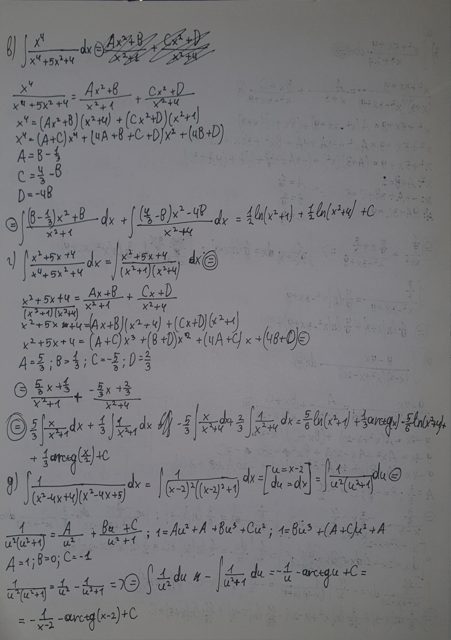 в) ∫ x⁴/(x⁴+5x²+4) dx = (Ax²+B)/(x²+1) + (Cx²+D)/(x²+4)
x⁴/(x⁴+5x²+4) = (Ax²+B)/(x²+1) + (Cx²+D)/(x²+4)
x⁴ = (Ax²+B)(x²+4) + (Cx²+D)(x²+1)
x⁴ = (A+C)x⁴ + (4A+B+C+D)x² + (4B+D)
A = B - 1/3
C = 4/3 - B
D = -4B
= ∫ ((B-1/3)x²+B)/(x²+1) dx + ∫ ((4/3-B)x²-4B)/(x²+4) dx = 1/2 ln(x²+1) + 1/2 ln(x²+4) + C
г) ∫ (x²+5x+4)/(x⁴+5x²+4) dx = ∫ (x²+5x+4)/((x²+1)(x²+4)) dx =
(x²+5x+4)/((x²+1)(x²+4)) = (Ax+B)/(x²+1) + (Cx+D)/(x²+4)
x²+5x+4 = (Ax+B)(x²+4) + (Cx+D)(x²+1)
x²+5x+4 = (A+C)x³ + (B+D)x² + (4A+C)x + (4B+D) =
A = 5/3; B = 1/3; C = -5/3; D = 2/3
= (5/3x+1/3)/(x²+1) + (-5/3x+2/3)/(x²+4)
= 5/3 ∫ x/(x²+1) dx + 1/3 ∫ 1/(x²+1) dx - 5/3 ∫ x/(x²+4) dx + 2/3 ∫ 1/(x²+4) dx = 5/6 ln(x²+1) + 1/3 arctg(x) - 5/6 ln(x²+4) +
+ 1/3 arctg(x/2) + C
д) ∫ 1/((x²-4x+4)(x²-4x+5)) dx = ∫ 1/((x-2)²((x-2)²+1)) dx = [u=x-2 du=dx] = ∫ 1/(u²(u²+1)) du =
1/(u²(u²+1)) = A/u² + (Bu+C)/(u²+1); 1 = Au²+A+Bu³+Cu²; 1 = Bu³+(A+C)u²+A
A = 1; B = 0; C = -1
1/(u²(u²+1)) = 1/u² - 1/(u²+1) => = ∫ 1/u² du - ∫ 1/(u²+1) du = -1/u - arctg u + C =
= -1/(x-2) - arctg(x-2) + C